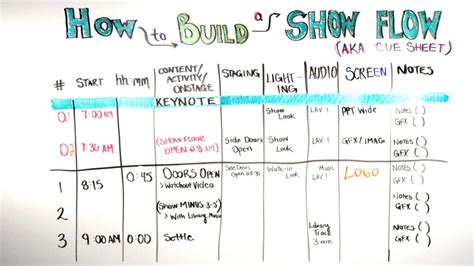 How to Build a Show Flow
(AKA CUE SHEET)
# START hh:mm CONTENT/ACTIVITY/ONSTAGE STAGING LIGHT-ING AUDIO SCREEN NOTES
KEYNOTE
01 7:00 AM Show Look LAV 1 PPT Wide Notes ( ) GFX ( )
02 7:30 AM (SHOW FLOOR OPEN @ 8 AM) Side Doors Open Show Look LAV 1 GFX/IMAG Notes ( ) GFX ( )
1 8:15 0:45 DOORS OPEN Side Doors Open Walk-in Look Music LAV 1 LOGO Notes ( ) GFX ( )
2 (Show MINUS 3-5) > With Library Music Notes ( ) GFX ( )
3 9:00 AM 0:00 Settle Library Track 3 min Notes ( ) GFX ( )